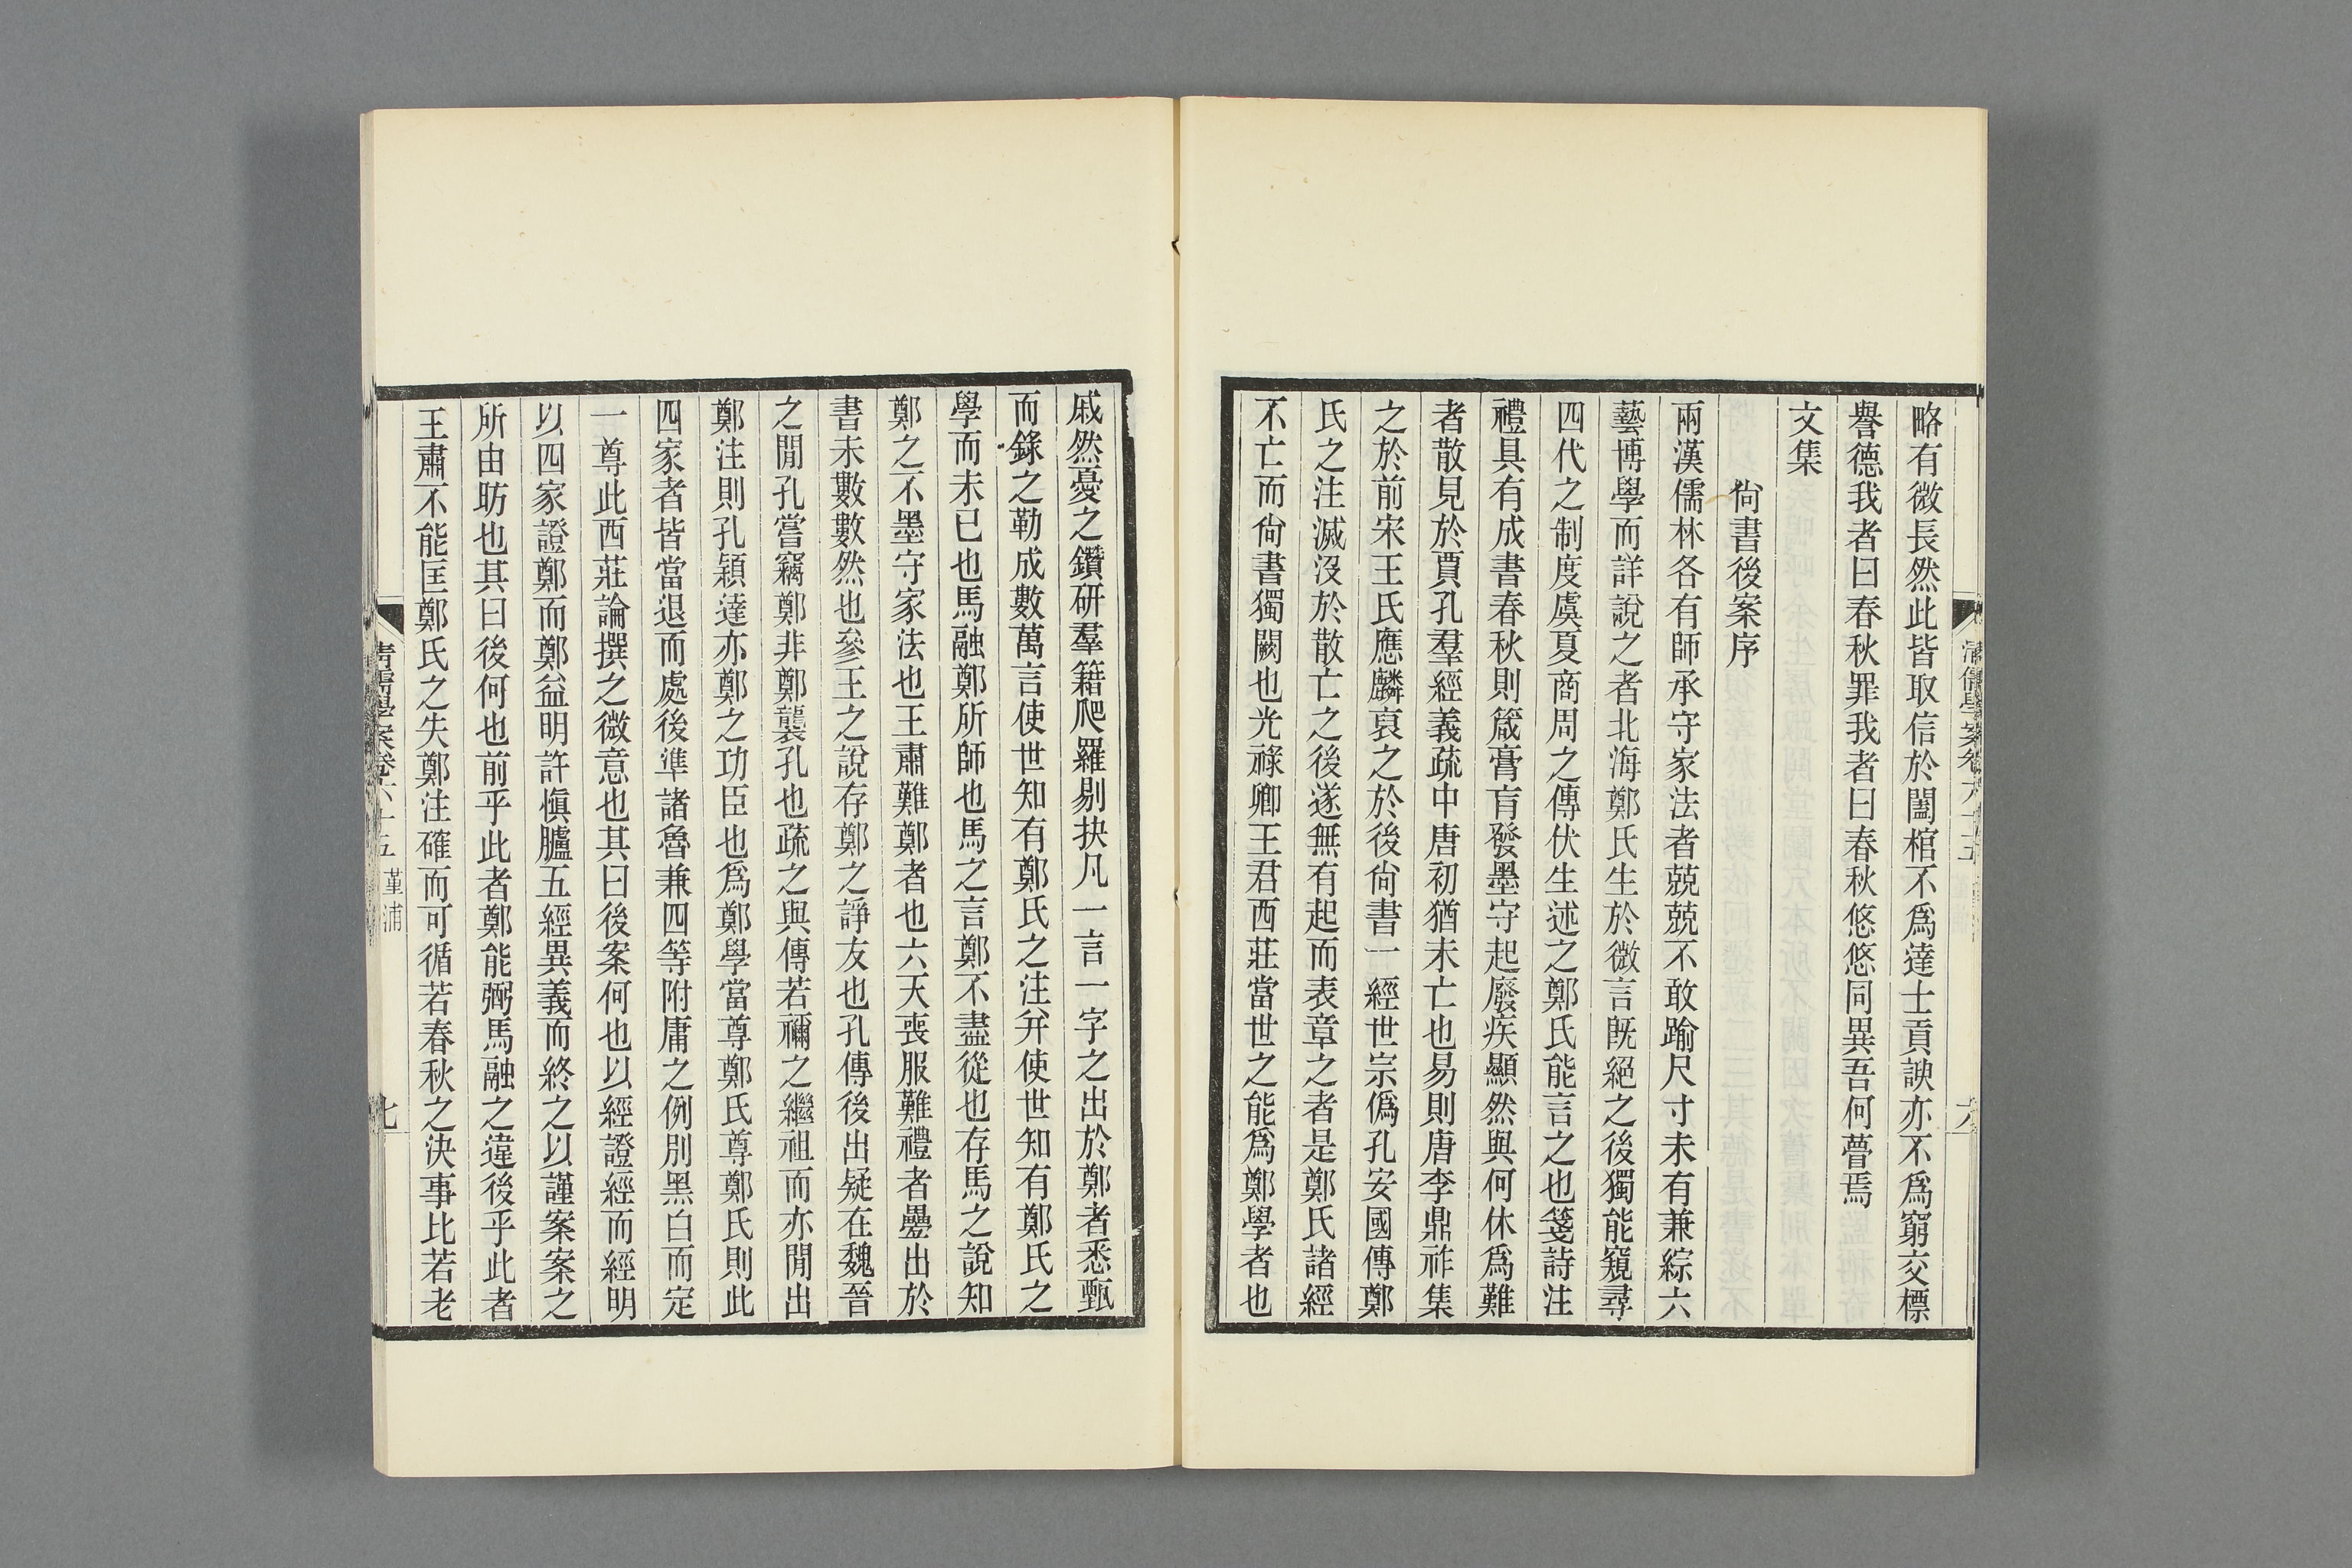 略有微長然此皆取信於闔棺不爲達士貢諛亦不爲窮交標
譽德我者曰春秋罪我者曰春秋悠悠同異吾何瞢焉
文集
尙書後案序
兩漢儒林各有師承守家法者兢兢不敢踰尺寸未有兼綜六
藝博學而詳說之者北海鄭氏生於微言旣絕之後獨能窺尋
四代之制度虞夏商周之傳伏生述之鄭氏能言之也箋詩注
禮具有成書春秋則箴膏肓發墨守起廢疾顯然與何休爲難
者散見於賈孔羣經義疏中唐初猶未亡也易則唐李鼎祚集
之於前宋王氏應麟裒之於後尙書一經世宗僞孔安國傳鄭
氏之注滅沒於散亡之後遂無有起而表章之者是鄭氏諸經
不亡而尙書獨闕也光祿卿王君西莊當世之能爲鄭學者也
戚然憂之鑽研羣籍爬羅剔抉凡一言一字之出於鄭者悉甄
而錄之勒成數萬言使世知有鄭氏之注幷使世知有鄭氏之
學而未已也馬融鄭所師也馬之言鄭不盡從也存馬之說知
鄭之不墨守家法也王肅難鄭者也六天喪服難禮者疊出於
書未數數然也參王之說存鄭之諍友也孔傳後出疑在魏晉
之閒孔嘗竊鄭非鄭襲孔也疏之與傳若禰之繼祖而亦閒出
鄭注則孔穎達亦鄭之功臣也爲鄭學當尊鄭氏尊鄭氏則此
四家者皆當退而處後準諸魯兼四等附庸之例別黑白而定
一尊此西莊論撰之微意也其曰後案何也以經證經而經明
以四家證鄭而鄭益明許愼臚五經異義而終之以謹案案之
所由昉也其曰後何也前乎此者鄭能弼馬融之違後乎此者
王肅不能匡鄭氏之失鄭注確而可循若春秋之決事比若老
清儒學案卷六十五 堇浦
七